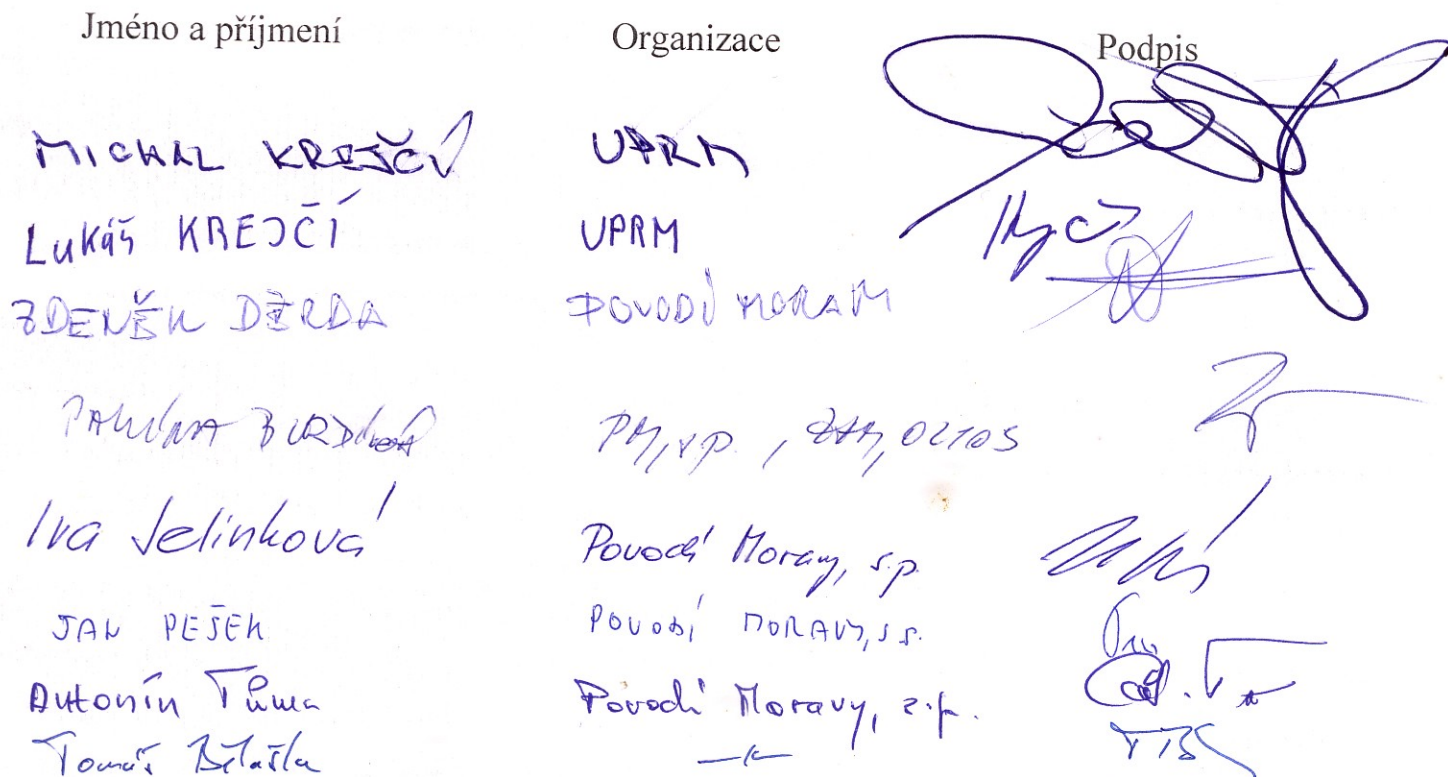 Jméno a příjmení Organizace Podpis
MICHAL KREJČÍ UPRM
Lukáš KREJČÍ UPRM
ZDENĚK POVODÍ MORAVY
PAVLÍNA BURDÍKOVÁ PM, s.p.,
Iva Jelínková Povodí Moravy, s.p.
JAN PEŠEK POVODÍ MORAVY, s.p.
Antonín Tůma Povodí Moravy, s.p.
Tomáš